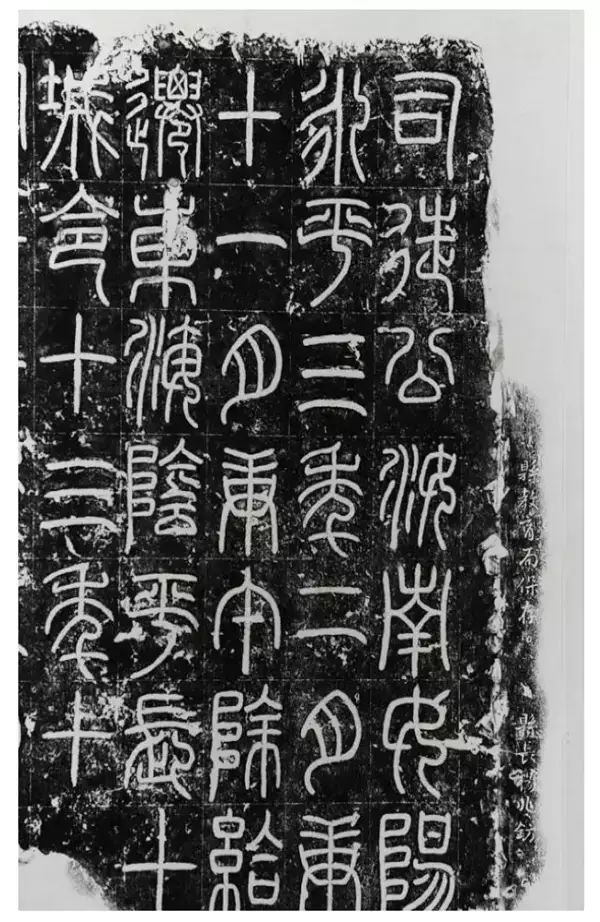 縣教育局保存。 縣長
司徒公汝南女陽
永平三年二月庚
十一月庚午除給
遷東海陰平長十
城令十三年十